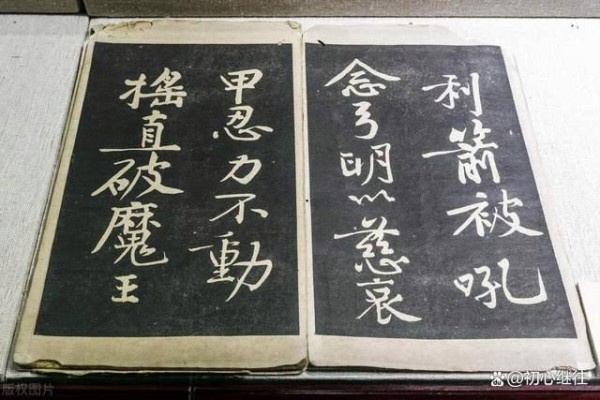 利箭被吼
念弓明以慈哀
甲忍力不動
搖直破魔王
版权图片
@初心继往